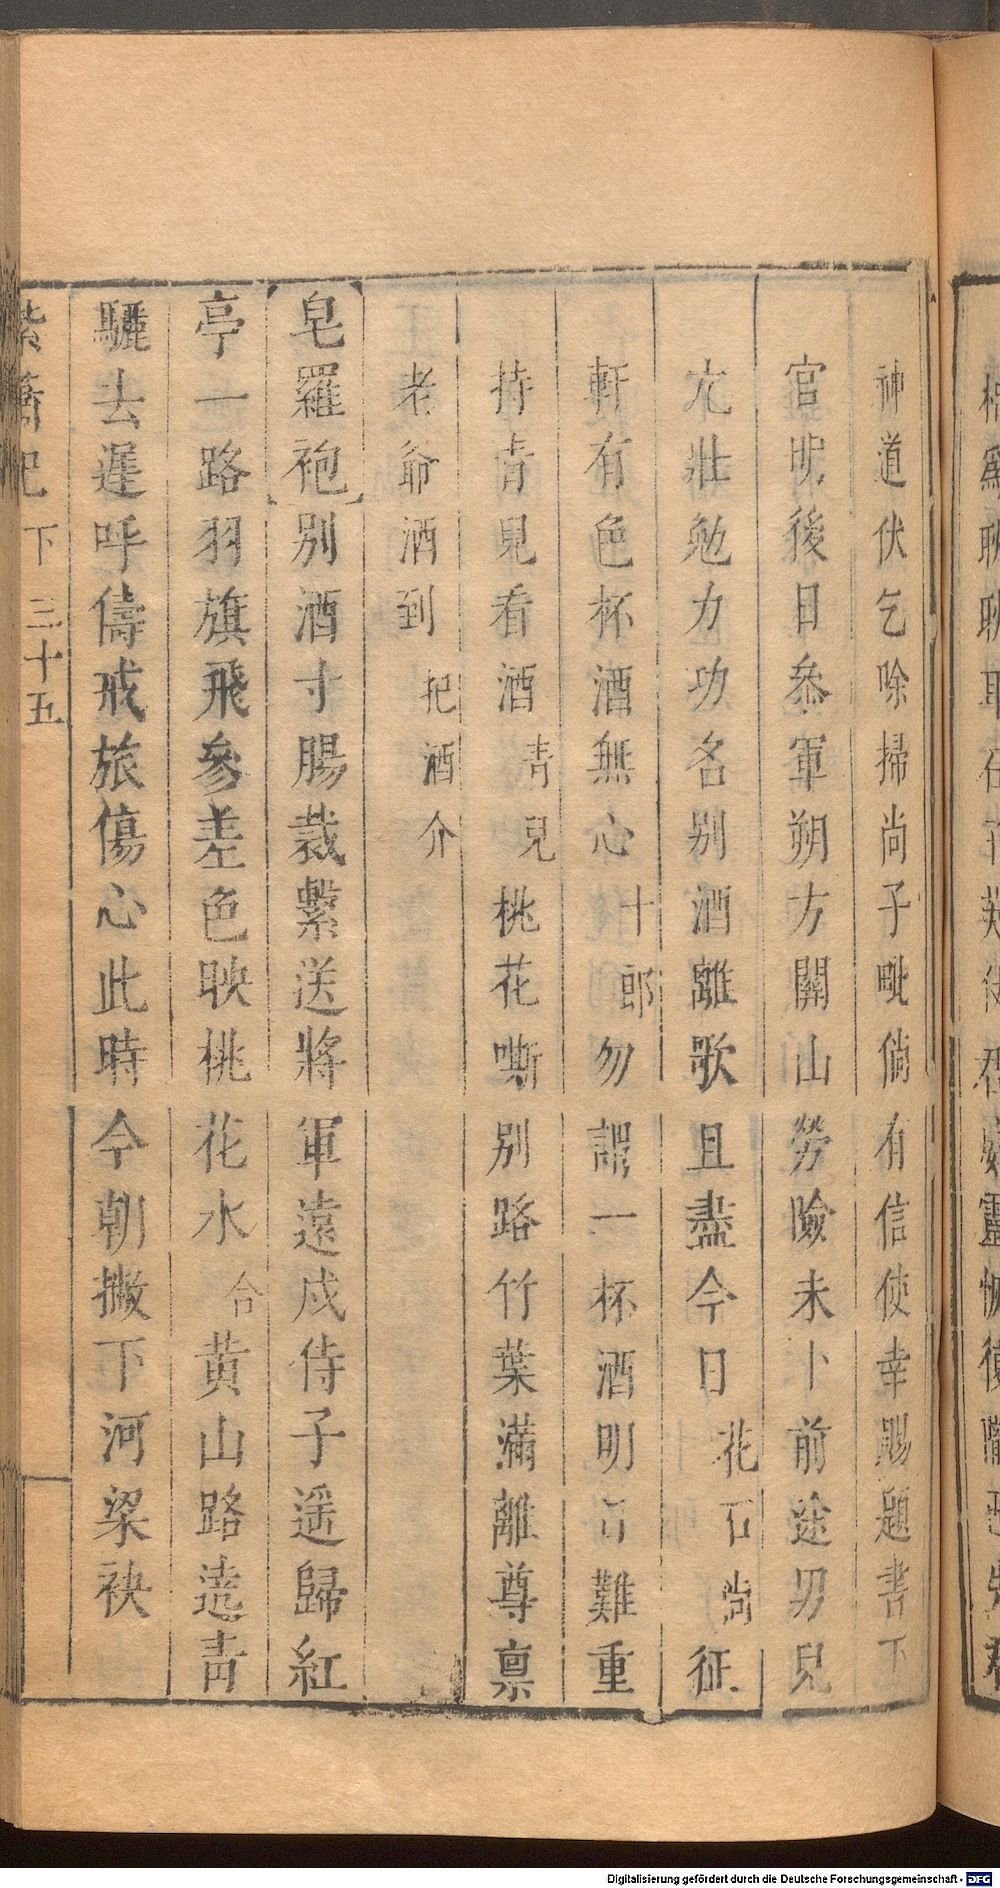 神道伏乞唫掃尚子毗倘有信使幸賜題書下
官明後日叅軍朔方關山勞險未卜前途男兒
亢壯勉力功名別酒離歌且盡今日花石尚征
軒有色杯酒無心十郎勿誤一杯酒明日難重
持青兒看酒青兒桃花嘶別路竹葉滿離尊禀
老爺酒到把酒介
皂羅袍別酒寸腸裁繫送將軍遠戍侍子遥歸紅
亭一路羽旗飛參差色映桃花水合黄山路遶青
驪去遲呼儔戒旅傷心此時今朝撇下河梁袂
紫簫記 下 三十五
Digitalisierung gefördert durch die Deutsche Forschungsgemeinschaft - DFG